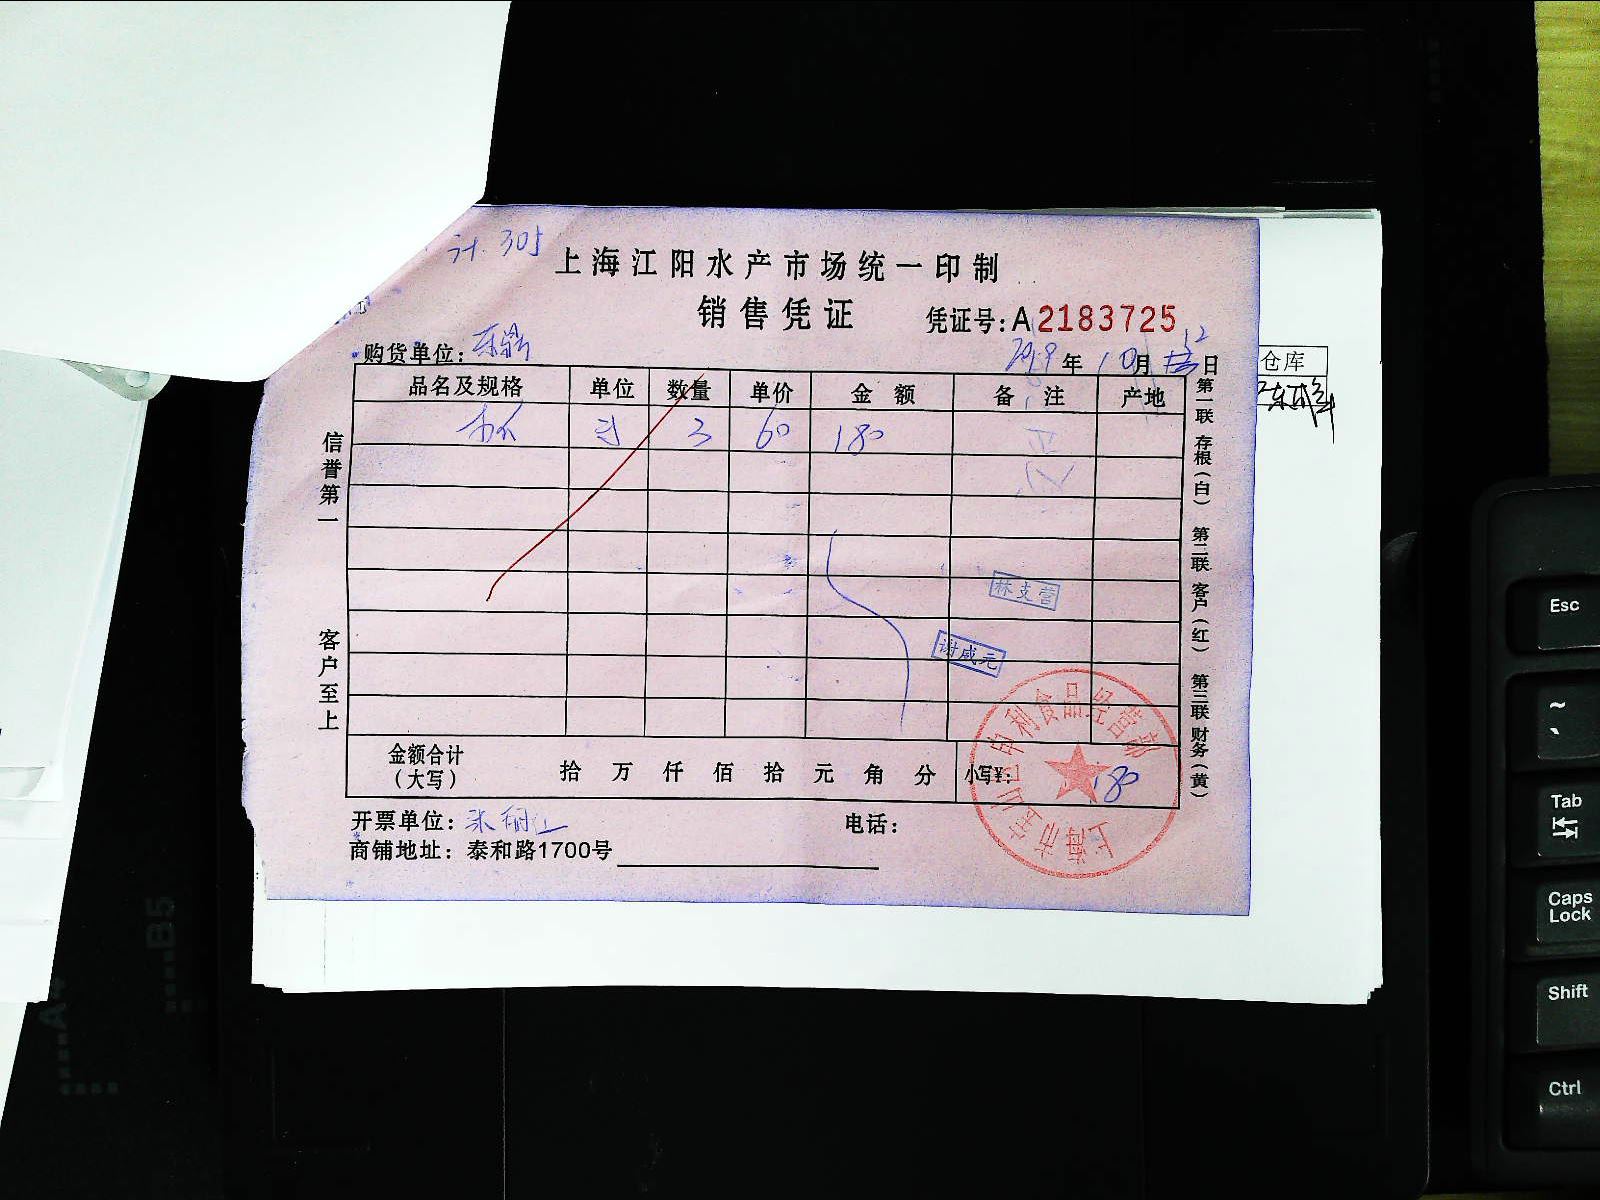 计.305
上海江阳水产市场统一印制
销售凭证
凭证号:A2183725
购货单位:
2019年10月 12日
仓库
品名及规格 单位 数量 单价 金额 备注 产地
3 60 180
信誉第一
客户至上
第一联 存根(白) 第二联 客户(红) 第三联 财务(黄)
林支营
谢咸元
金额合计
(大写)
拾 万 仟 佰 拾 元 角 分
小写¥: 180
开票单位:
电话:
商铺地址: 泰和路1700号
A4
B5
Esc
~
Tab
Caps
Lock
Shift
Ctrl